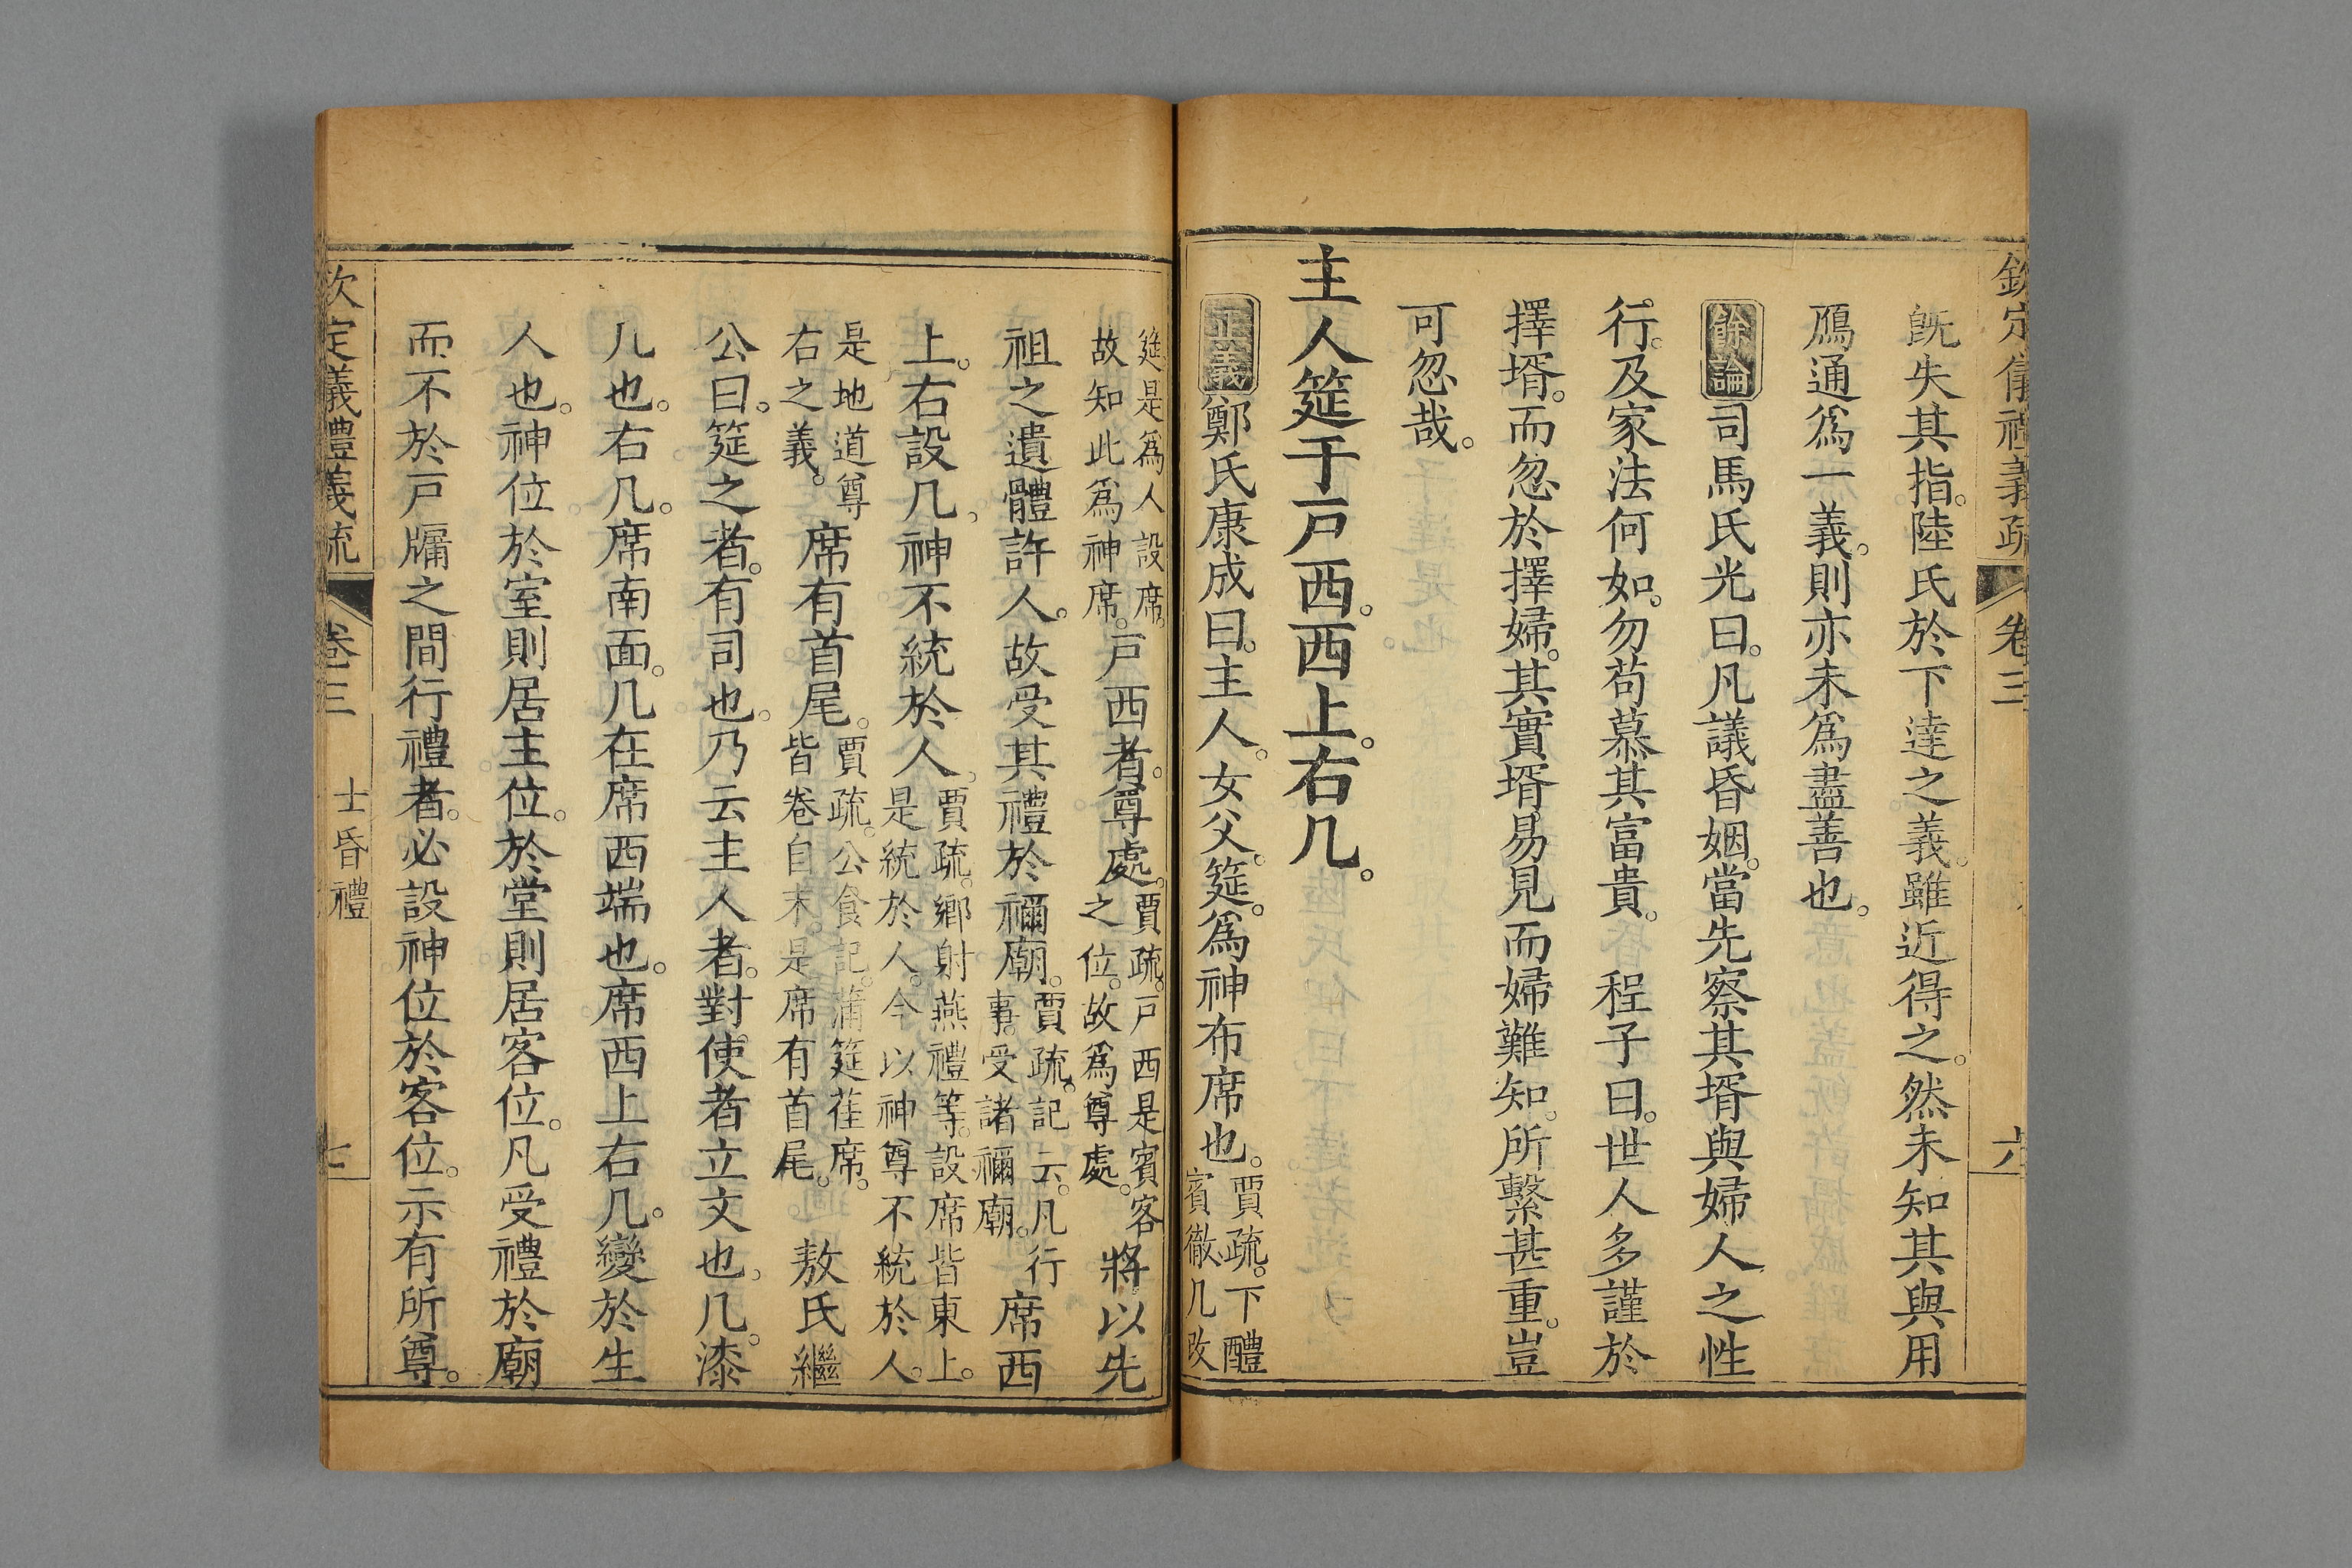 欽定儀禮義疏 卷三 六
既失其指。陸氏於下達之義。雖近得之。然未知其與用
鴈通爲一義。則亦未爲盡善也。
餘論 司馬氏光曰。凡議昏姻。當先察其壻與婦人之性
行。及家法何如。勿苟慕其富貴。 程子曰。世人多謹於
擇壻。而忽於擇婦。其實壻易見而婦難知。所繫甚重。豈
可忽哉。
主人筵于戸西。西上。右几。
正義 鄭氏康成曰。主人。女父。筵。爲神布席也。賈疏。下醴賓徹几改
筵是爲人設席。故知此爲神席。戸西者。尊處。賈疏。戸西是賓客之位。故爲尊處。將以先
祖之遺體許人。故受其禮於禰廟。賈疏。記云。凡行事。受諸禰廟。席西
上。右設几。神不統於人。賈疏。鄉射燕禮等。設席皆東上。是統於人。今以神尊不統於人。
是地道尊右之義。席有首尾。賈疏。公食記。蒲筵萑席。皆卷自末。是席有首尾。 敖氏繼
公曰。筵之者。有司也。乃云主人者。對使者立文也。几。漆
几也。右几。席南面。几在席西端也。席西上右几。變於生
人也。神位於室則居主位。於堂則居客位。凡受禮於廟
而不於戸牖之間行禮者。必設神位於客位。示有所尊。
欽定儀禮義疏 卷三 士昏禮 七